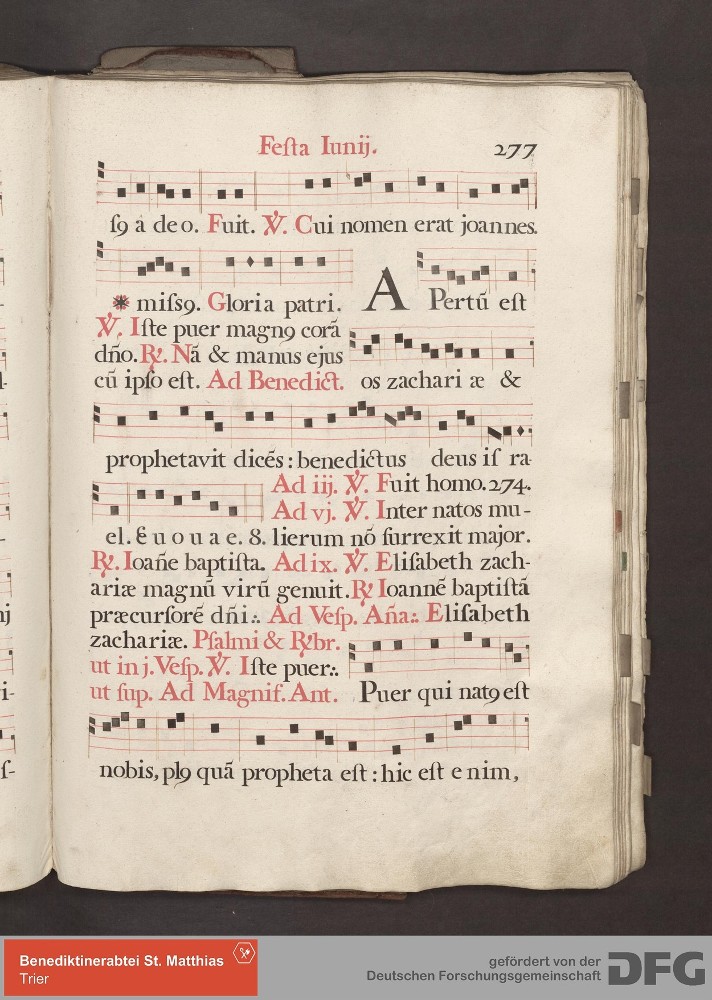 Festa Iunij. 277
s9 a deo. Fuit. ℣. Cui nomen erat joannes.
✷ miss9. Gloria patri. APertũ est
℣. Iste puer magn9 corã
dño. ℟. Nã & manus ejus
cũ ipso est. Ad Benedict. os zachari æ &
prophetavit dicẽs: benedictus deus is ra-
Ad iij. ℣. Fuit homo. 274.
Ad vj. ℣. Inter natos mu-
el. E u o u a e. 8. lierum nõ surrexit major.
℟. Ioañe baptista. Ad ix. ℣. Elisabeth zach-
ariæ magnũ virũ genuit. ℟ Ioannẽ baptistã
præcursorẽ dñi:. Ad Vesp. Aña:. Elisabeth
zachariæ. Psalmi & ℟br.
ut in j. Vesp. ℣. Iste puer:.
ut sup. Ad Magnif. Ant. Puer qui nat9 est
nobis, pl9 quã propheta est: hic est enim,
Benediktinerabtei St. Matthias
Trier
gefördert von der
Deutschen Forschungsgemeinschaft DFG